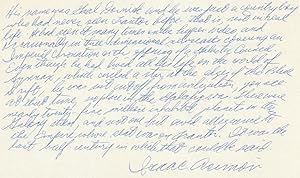 His name was Gaal Dornick and he was just a country boy
who had never seen Trantor before. That is, not in real
life. He had seen it many times on the hyper-video and
occasionally in three-dimensional newscasts covering an
Imperial Coronation or the opening of a Galactic Council.
Even though he had lived all his life on the world of
Synnax, which circled a star at the edge of the Blue
Drift, he was not cut off from civilization, you see.
At that time, no place in the Galaxy was. There were
nearly twenty-five million inhabited planets in the
Galaxy then, and not one but owed allegiance to
the Empire whose seat was on Trantor. It was the
last half-century in which that could be said.
Isaac Asimov